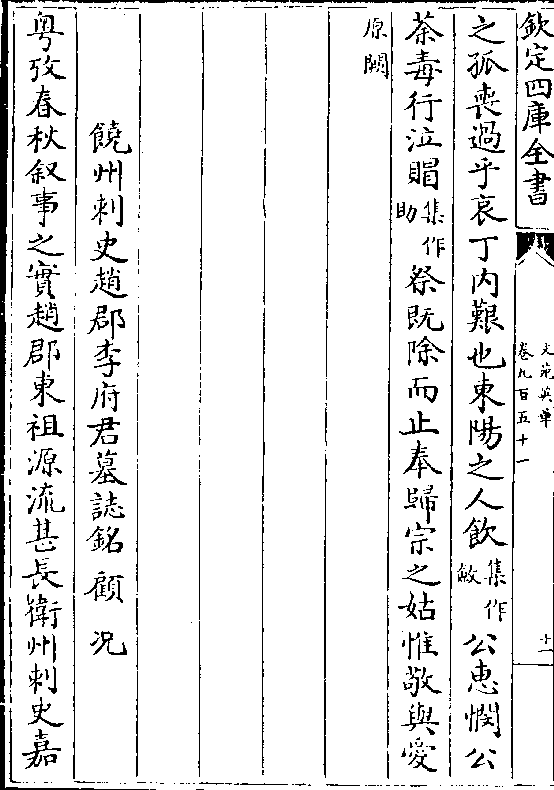 欽定四庫全書
文苑英華
卷九百五十一
十一
之孤喪過乎哀丁内艱也東陽之人飲集作斂公惠憫公
荼毒行泣賵集作助祭既除而止奉歸宗之姑惟敬與愛
原闕
饒州刺史趙郡李府君墓誌銘 顧況
粤攷春秋叙事之實趙郡東祖源流甚長衛州刺史嘉